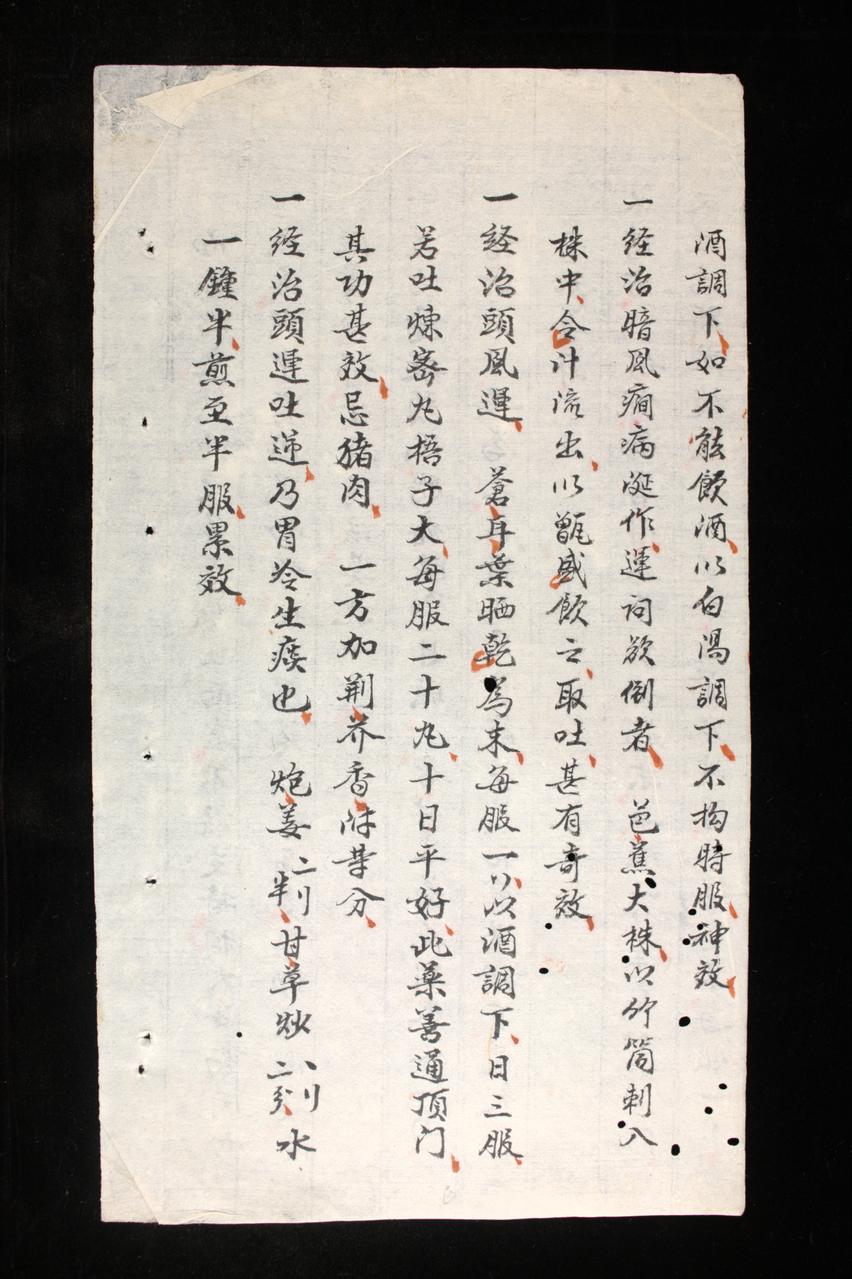 酒調下如不能飲酒以白湯調下不拘時服神效
一経治暗風癇病涎作運詞欲倒者 芭蕉大株以竹筒刺入
株中令汁流出以甑盛飲之取吐甚有奇效
一経治頭風運 蒼耳葉晒乾為末每服一以酒調下日三服
若吐煉宻丸梧子大每服二十丸十日平好此藥善通頂门
其功甚效忌猪肉 一方加荆芥香附等分
一経治頭運吐逆乃胃冷生痰也 炮姜二半甘草炒二水
一鍾半煎至半服累效